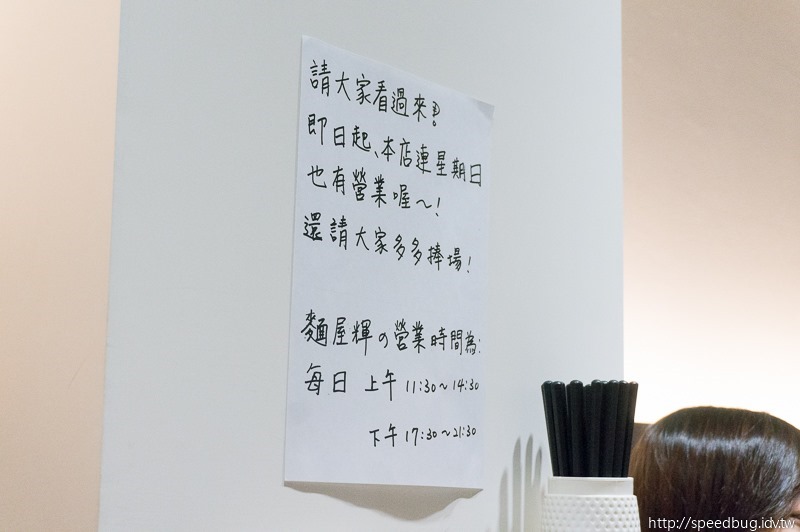 請大家看過來!
即日起、本店連星期日
也有營業喔～!
還請大家多多捧場!
麵屋輝の營業時間為:
每日 上午 11:30～14:30
下午 17:30～21:30
http://speedbug.idv.tw